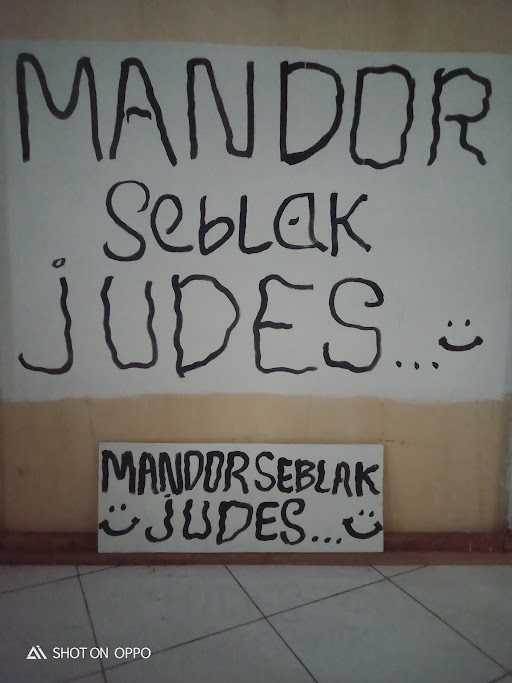 MANDOR
SEBLAK
JUDES...
MANDOR SEBLAK
JUDES...
SHOT ON OPPO